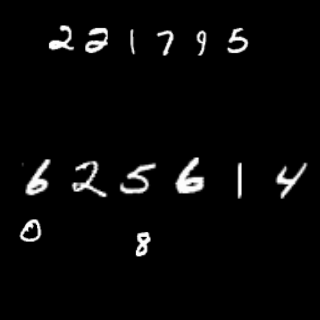 221795
625614
0 8